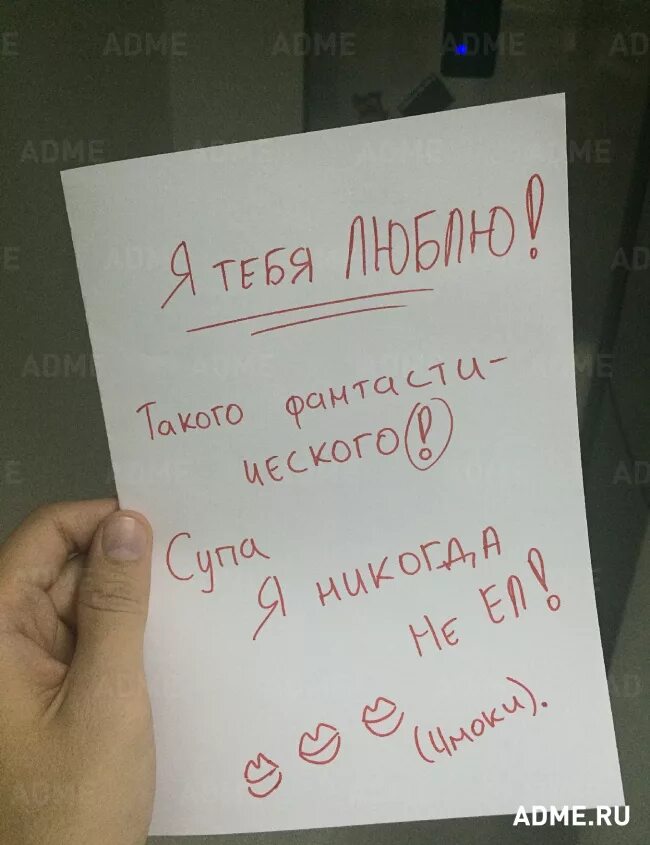 Я ТЕБЯ ЛЮБЛЮ!
Такого фантасти-
ческого!
Супа
Я никогда
Не ел!
(Чмоки).
ADME.RU